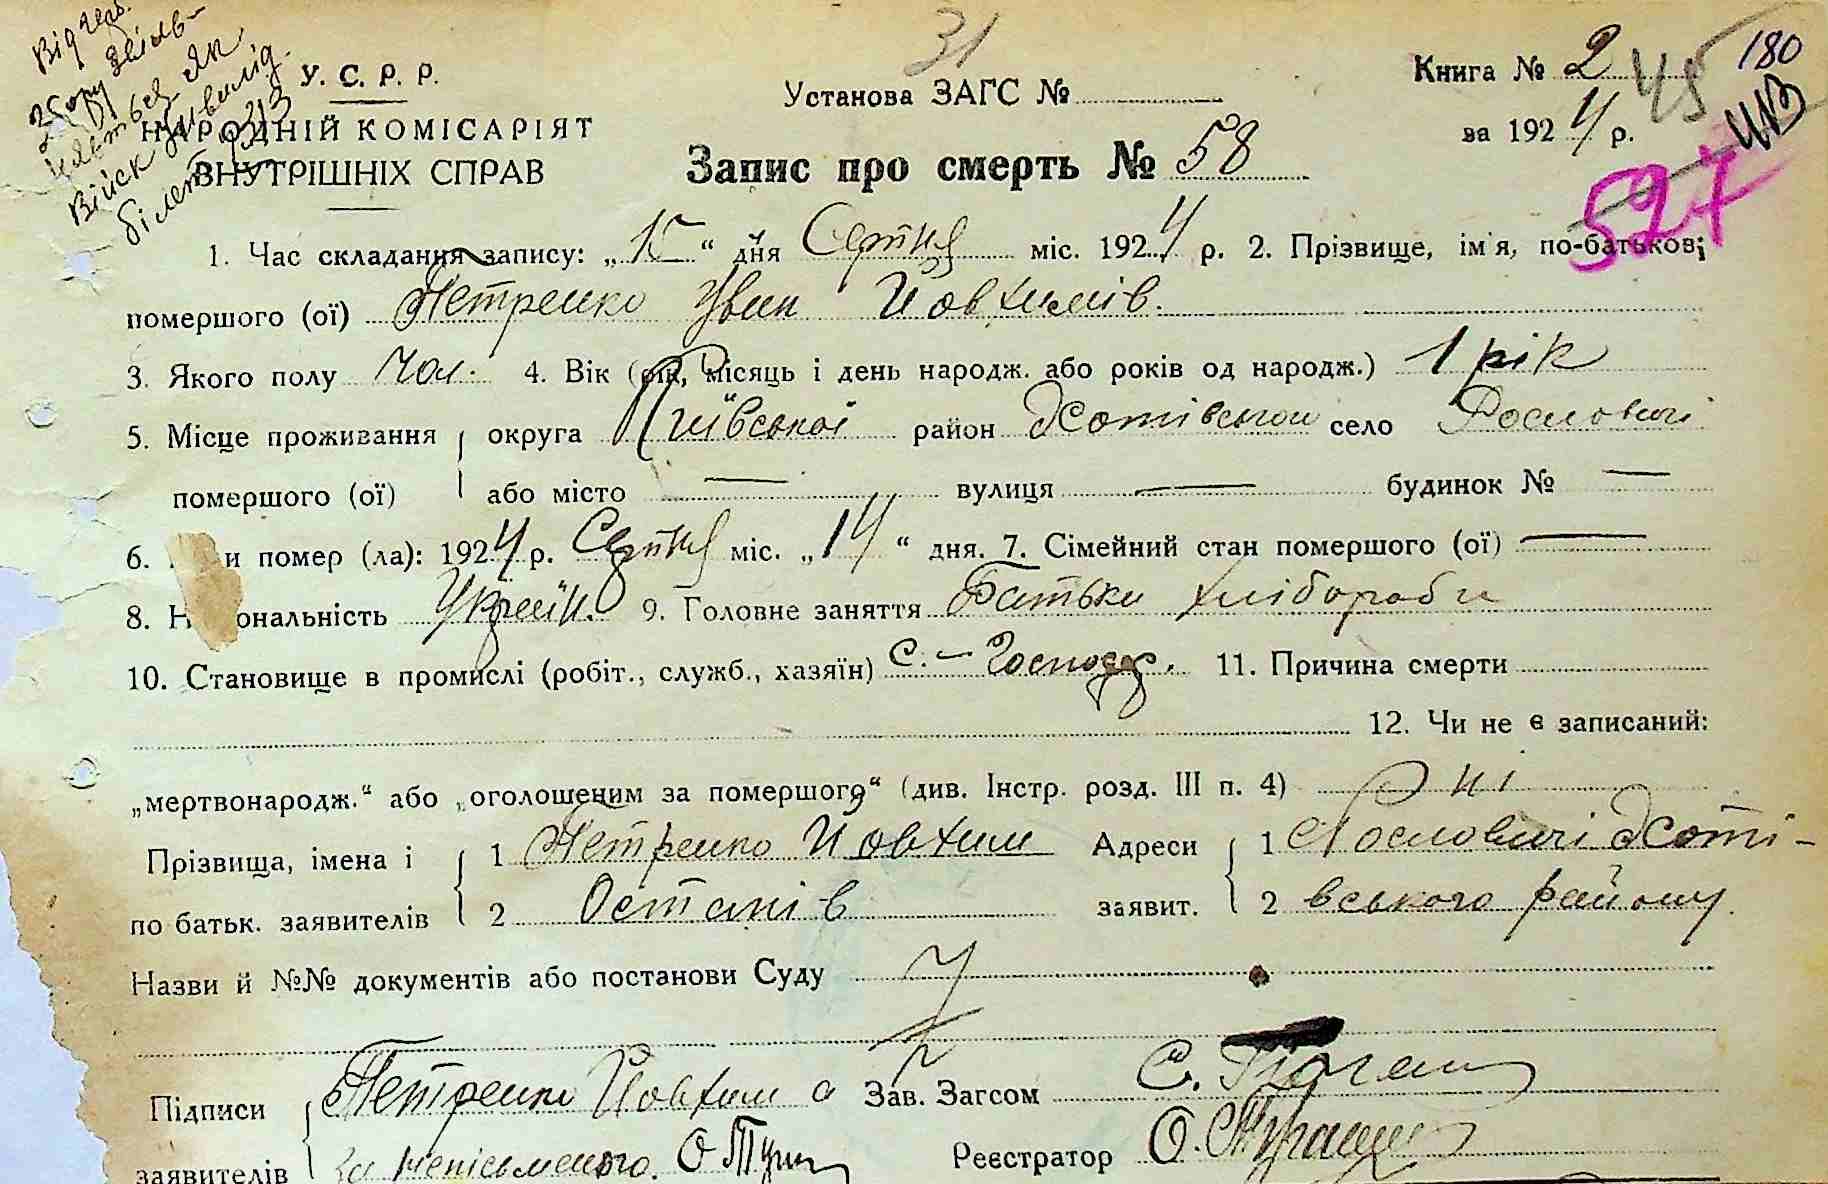 Від герб.
збору звіль-
няеться як
Війск інвалід.
білет 9313
31
У. С. Р. Р.
НАРОДНІЙ КОМІСАРІЯТ
ВНУТРІШНІХ СПРАВ
Установа ЗАГС №
Книга № 2 45 180
за 1924 р. ЧВ
527
Запис про смерть № 58
1. Час складання запису: „15“ дня Серпня міс. 1924 р. 2. Прізвище, ім'я, по-батькові
помершого (ої) Петренко Іван Йовхимів.
3. Якого полу Чол. 4. Вік (рік, місяць і день народж. або років од народж.) 1 рік
5. Місце проживання округа Київської район Хотівськой село Рословичі
помершого (ої) або місто — вулиця — будинок № —
6. и помер (ла): 1924 р. Серпня міс. „14“ дня. 7. Сімейний стан помершого (ої) —
8. Н ональність Україн. 9. Головне заняття Батьки хлібороби
10. Становище в промислі (робіт., служб., хазяїн) С.-Господар. 11. Причина смерти
12. Чи не є записаний:
„мертвонародж.“ або „оголошеним за помершого“ (див. Інстр. розд. III п. 4) Ні
Прізвища, імена і 1 Петренко Йовхим Адреси 1 Рословичі Хоті-
по батьк. заявителів 2 Остапів заявит. 2 вського району.
Назви й №№ документів або постанови Суду
Підписи Петренко Йовхим а Зав. Загсом С.
заявителів За неписьменого. О. Реєстратор О.